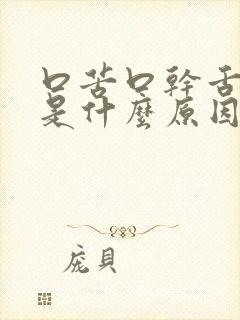 口苦口幹舌
是什麼原因
庞貝